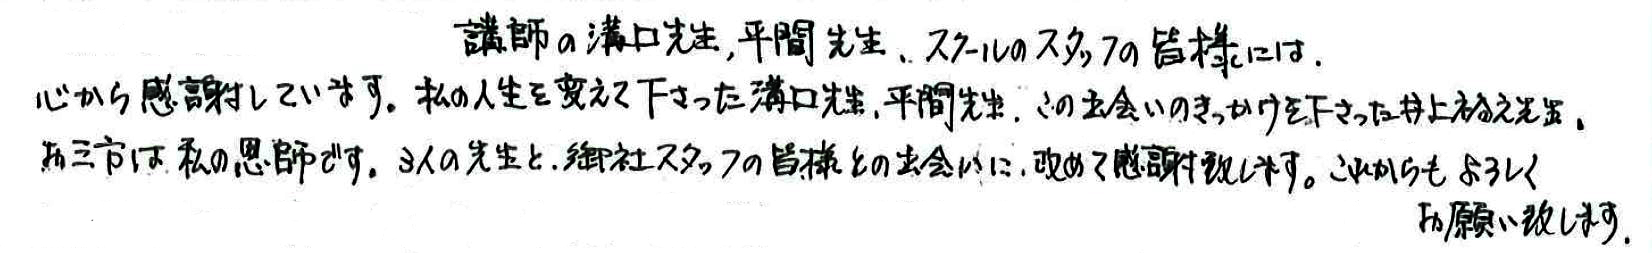 講師の溝口先生,平間先生、スクールのスタッフの皆様には、
心から感謝しています。私の人生を変えて下さった溝口先生、平間先生、この出会いのきっかけを下さった井上先生。
お三方は私の恩師です。3人の先生と、御社スタッフの皆様との出会いに、改めて感謝致します。これからもよろしく
お願い致します。